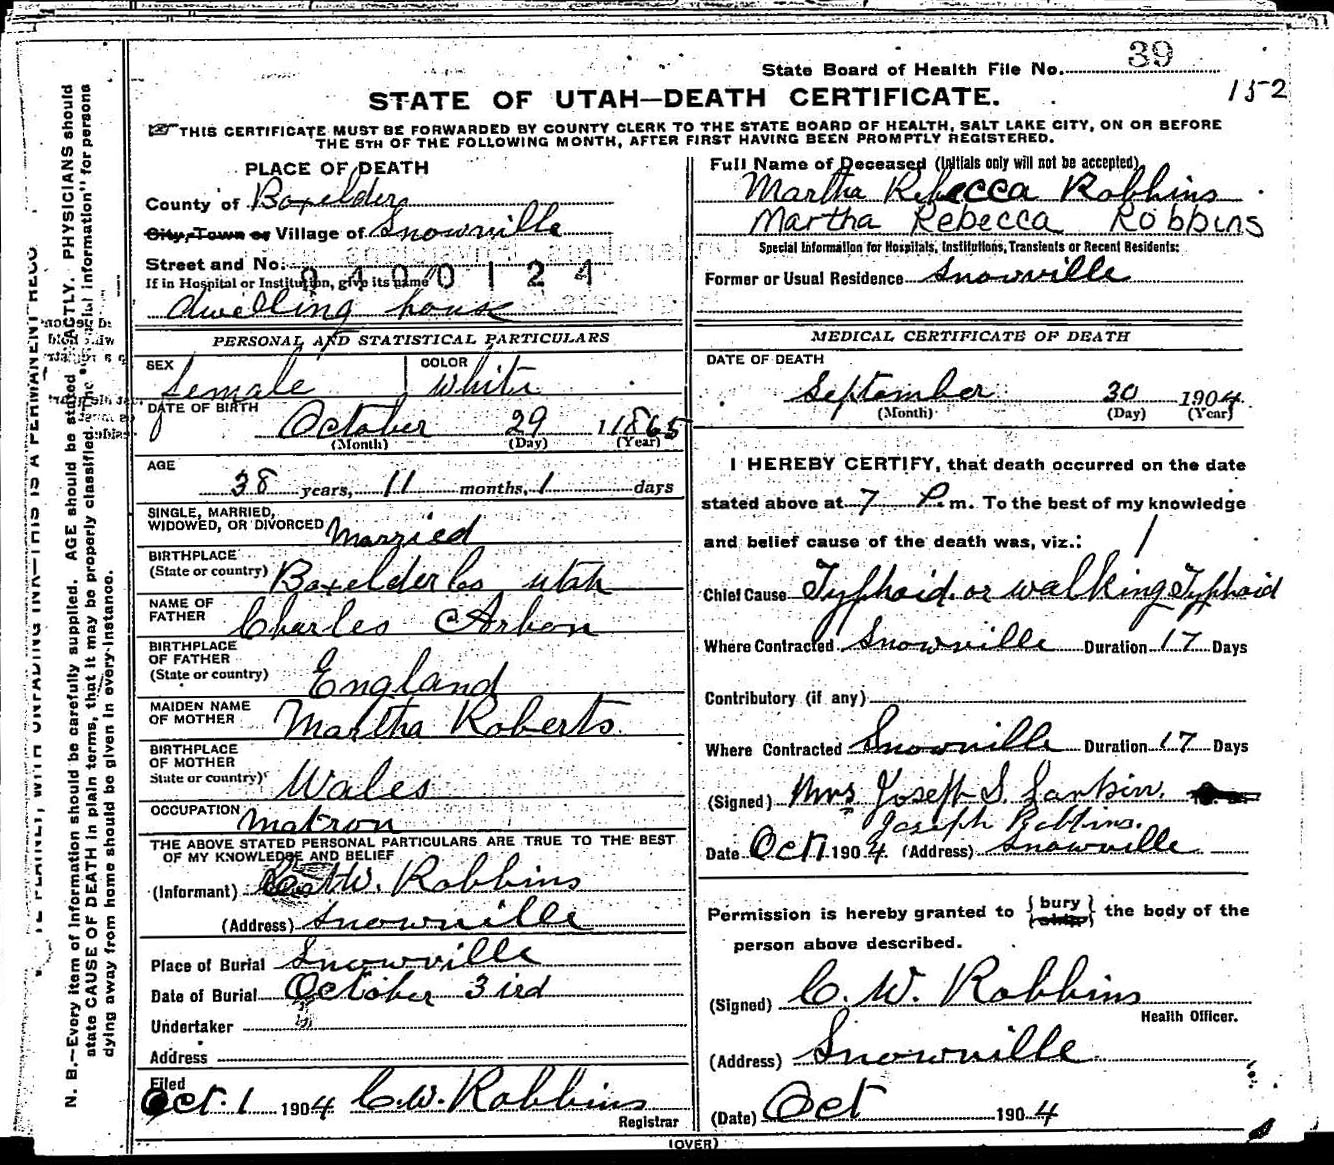 39
State Board of Health File No.
152
STATE OF UTAH—DEATH CERTIFICATE.
THIS CERTIFICATE MUST BE FORWARDED BY COUNTY CLERK TO THE STATE BOARD OF HEALTH, SALT LAKE CITY, ON OR BEFORE
THE 5TH OF THE FOLLOWING MONTH, AFTER FIRST HAVING BEEN PROMPTLY REGISTERED.
PLACE OF DEATH
County of Boxelder
City, Town or Village of Snowville
Street and No.
0400124
If in Hospital or Institution, give its name
dwelling house
PERSONAL AND STATISTICAL PARTICULARS
SEX female COLOR white
DATE OF BIRTH October 29 1865
(Month) (Day) (Year)
AGE
38 years, 11 months, 1 days
SINGLE, MARRIED,
WIDOWED, OR DIVORCED Married
BIRTHPLACE
(State or country) Boxelder Co utah
NAME OF
FATHER Charles Arbon
BIRTHPLACE
OF FATHER
(State or country) England
MAIDEN NAME
OF MOTHER Martha Roberts
BIRTHPLACE
OF MOTHER
State or country) Wales
OCCUPATION Matron
THE ABOVE STATED PERSONAL PARTICULARS ARE TRUE TO THE BEST
OF MY KNOWLEDGE AND BELIEF
(Informant) W. Robbins
(Address) Snowville
Place of Burial Snowville
Date of Burial October 3ird
Undertaker
Address
Filed
Oct. 1 1904 C. W. Robbins
Registrar
Full Name of Deceased (Initials only will not be accepted)
Martha Rebecca Robbins
Martha Rebecca Robbins
Special Information for Hospitals, Institutions, Transients or Recent Residents:
Former or Usual Residence Snowville
MEDICAL CERTIFICATE OF DEATH
DATE OF DEATH
September 30 1904
(Month) (Day) (Year)
I HEREBY CERTIFY, that death occurred on the date
stated above at 7 P.m. To the best of my knowledge
and belief cause of the death was, viz.:
Chief Cause Typhoid. or walking Typhoid
Where Contracted Snowville Duration 17 Days
Contributory (if any)
Where Contracted Snowville Duration 17 Days
(Signed) Mrs Joseph S. Larkin.
Joseph Robbins.
Date Oct 1 1904 (Address) Snowville
Permission is hereby granted to {bury} the body of the
person above described.
(Signed) C. W. Robbins
Health Officer.
(Address) Snowville
(Date) Oct 1904
(OVER)
N. B.—Every item of information should be carefully supplied. AGE should be stated EXACTLY. PHYSICIANS should
state CAUSE OF DEATH in plain terms, that it may be properly classified. The "Special Information" for persons
dying away from home should be given in every instance.
WITH UNFADING INK—THIS IS A PERMANENT